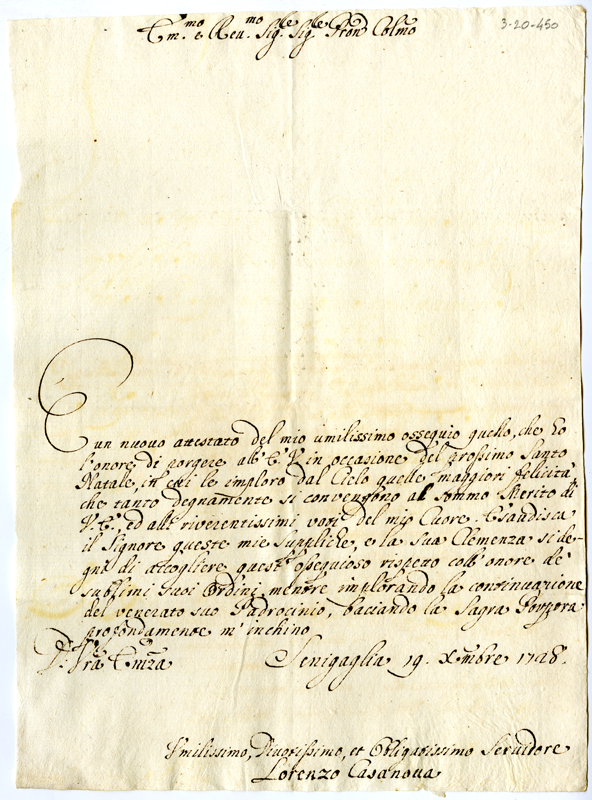 3-20-450
Em.mo e Reu.mo Sig.re Sig.re Pron Colmo
E un nuouo attestato del mio umilissimo ossequio quello, che ho
l'onore di porgere all' E. V. in occasione del prossimo Santo
Natale, in cui le imploro dal Cielo quelle maggiori felicità
che tanto degnamente si conuengono al sommo Merito di
V. E., ed alli riuerentissimi voti del mio Cuore. Esaudisca
il Signore queste mie suppliche, e la sua Clemenza si de-
gni di accogliere quest' ossequioso rispetto coll' onore de'
sublimi suoi Ordini, mentre implorando la continuazione
del venerato suo Padrocinio, baciando la Sagra Porpora
profondamente m' inchino
D. Vra Emza
Senigaglia 19. Xmbre 1728.
Vmilissimo, Diuotissimo, et Obligatissimo Seruidore
Lorenzo Casanoua